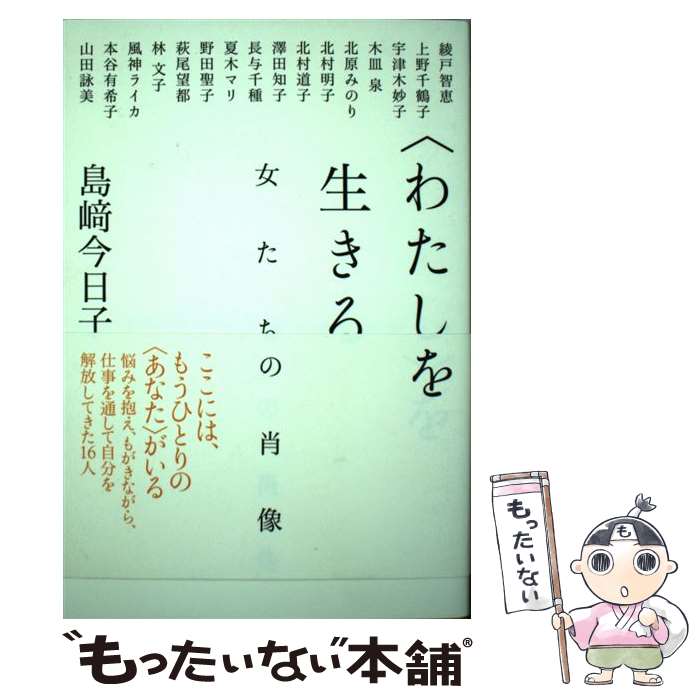 綾戸智恵
上野千鶴子
宇津木妙子
木皿 泉
北原みのり
北村明子
北村道子
澤田知子
長与千種
夏木マリ
野田聖子
萩尾望都
林 文子
風神ライカ
本谷有希子
山田詠美
〈わたしを
生きる
女たちの肖像
島﨑今日子
ここには、
もうひとりの
〈あなた〉がいる
悩みを抱え、もがきながら、
仕事を通して自分を
解放してきた16人
もったいない
も
"もったいない"本舗®